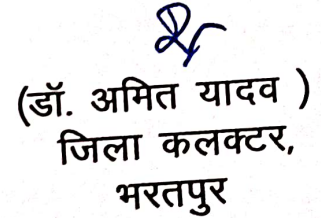 (डॉ. अमित यादव )
जिला कलक्टर,
भरतपुर